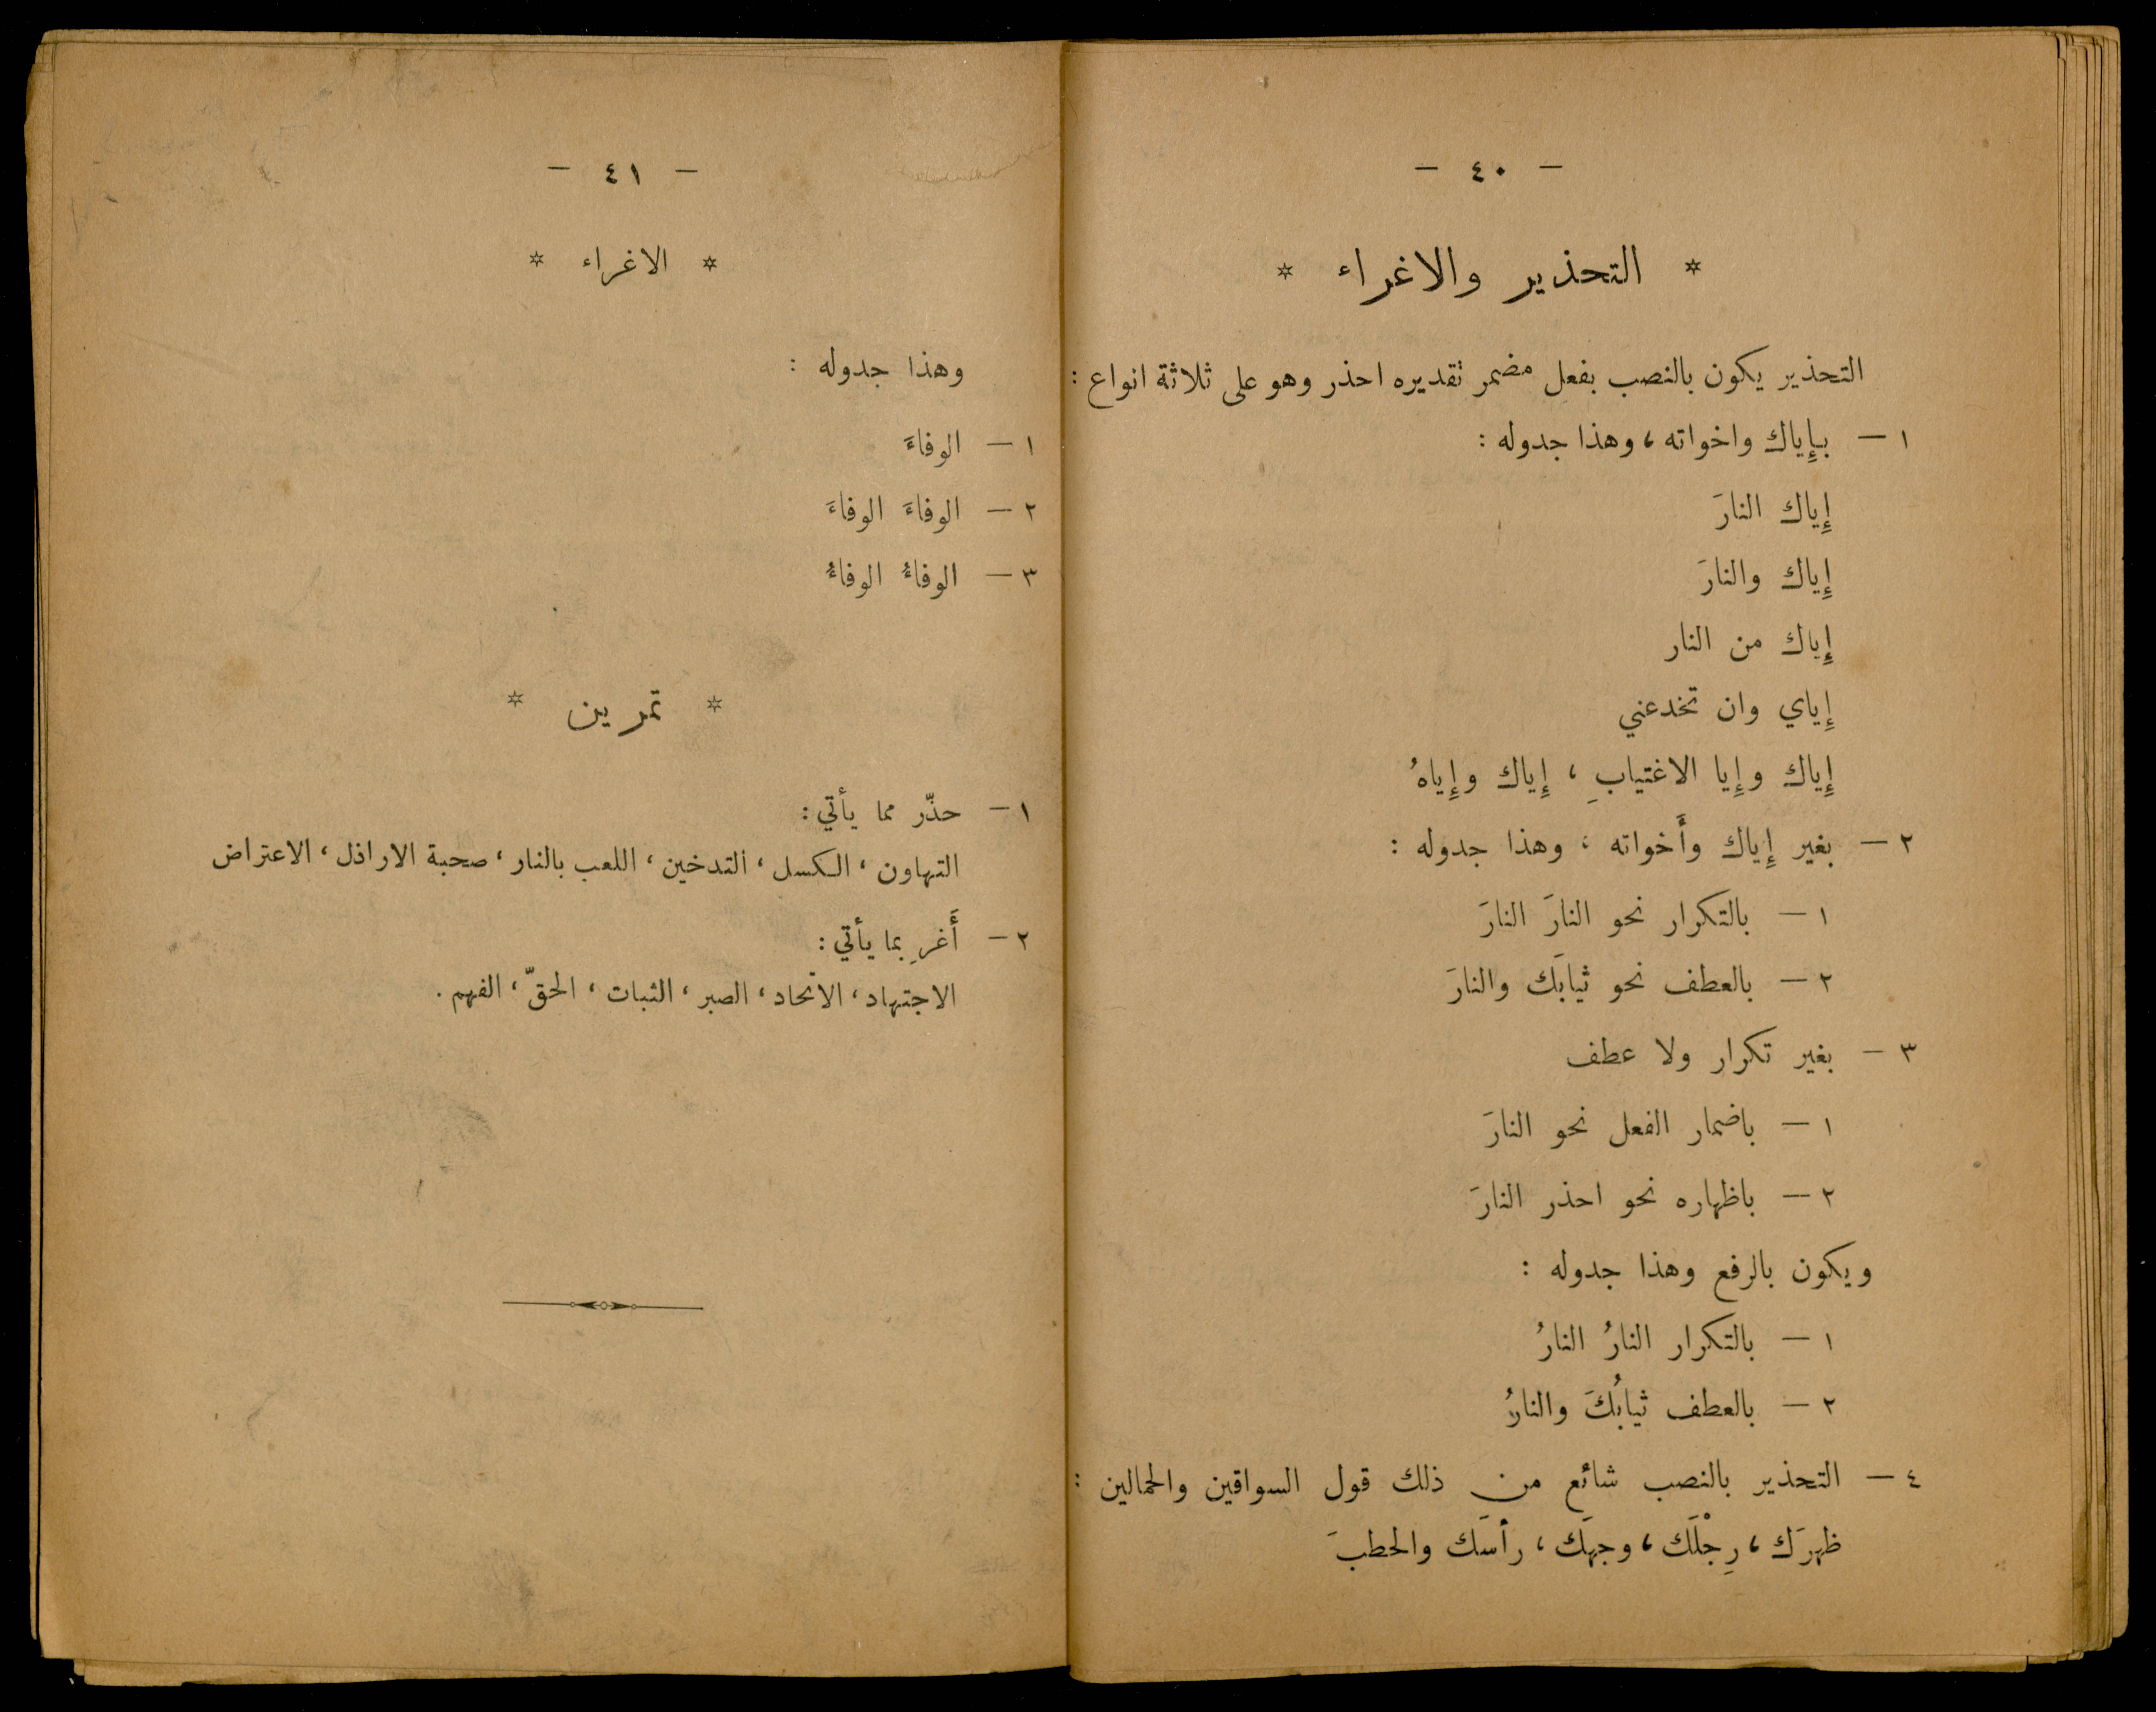 — ٤٠ —
* التحذير والاغراء *
التحذير يكون بالنصب بفعل مضمر تقديره احذر وهو على ثلاثة انواع :
١ — بإِياك واخواته ، وهذا جدوله :
إِياك النارَ
إِياك والنارَ
إِياك من النار
إِياي وان تخدعني
إِياك وإِيا الاغتيابِ ، إِياك وإِياهُ
٢ — بغير إِياك وأَخواته ، وهذا جدوله :
١ — بالتكرار نحو النارَ النارَ
٢ — بالعطف نحو ثيابَك والنارَ
٣ — بغير تكرار ولا عطف
١ — باضمار الفعل نحو النارَ
٢ — باظهاره نحو احذر النارَ
ويكون بالرفع وهذا جدوله :
١ — بالتكرار النارُ النارُ
٢ — بالعطف ثيابُكَ والنارُ
٤ — التحذير بالنصب شائع من ذلك قول السواقين والحمالين :
ظهرَك ، رِجْلَك ، وجهَك ، رأسَك والحطبَ
— ٤١ —
* الاغراء *
وهذا جدوله :
١ — الوفاءَ
٢ — الوفاءَ الوفاءَ
٣ — الوفاءُ الوفاءُ
* تمرين *
١ — حذّر مما يأتي :
التهاون ، الكسل ، التدخين ، اللعب بالنار ، صحبة الاراذل ، الاعتراض
٢ — أَغرِ بما يأتي :
الاجتهاد ، الاتحاد ، الصبر ، الثبات ، الحقّ ، الفهم .